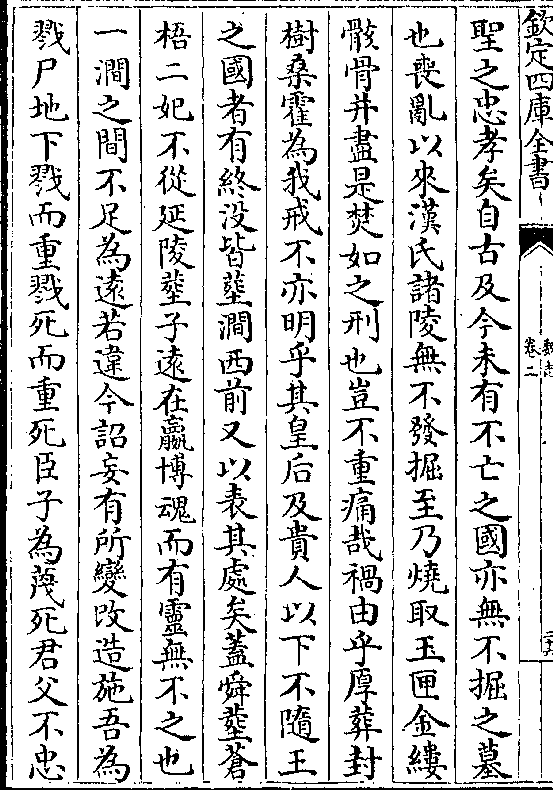 欽定四庫全書
魏志
卷二
聖之忠孝矣自古及今未有不亡之國亦無不掘之墓
也喪亂以來漢氏諸陵無不發掘至乃燒取玉匣金縷
骸骨并盡是焚如之刑也豈不重痛哉禍由乎厚葬封
樹桑霍為我戒不亦明乎其皇后及貴人以下不隨王
之國者有終没皆塟澗西前又以表其處矣蓋舜塟蒼
梧二妃不從延陵塟子遠在嬴博魂而有靈無不之也
一澗之間不足為遠若違今詔妄有所變改造施吾為
戮尸地下戮而重戮死而重死臣子為蔑死君父不忠